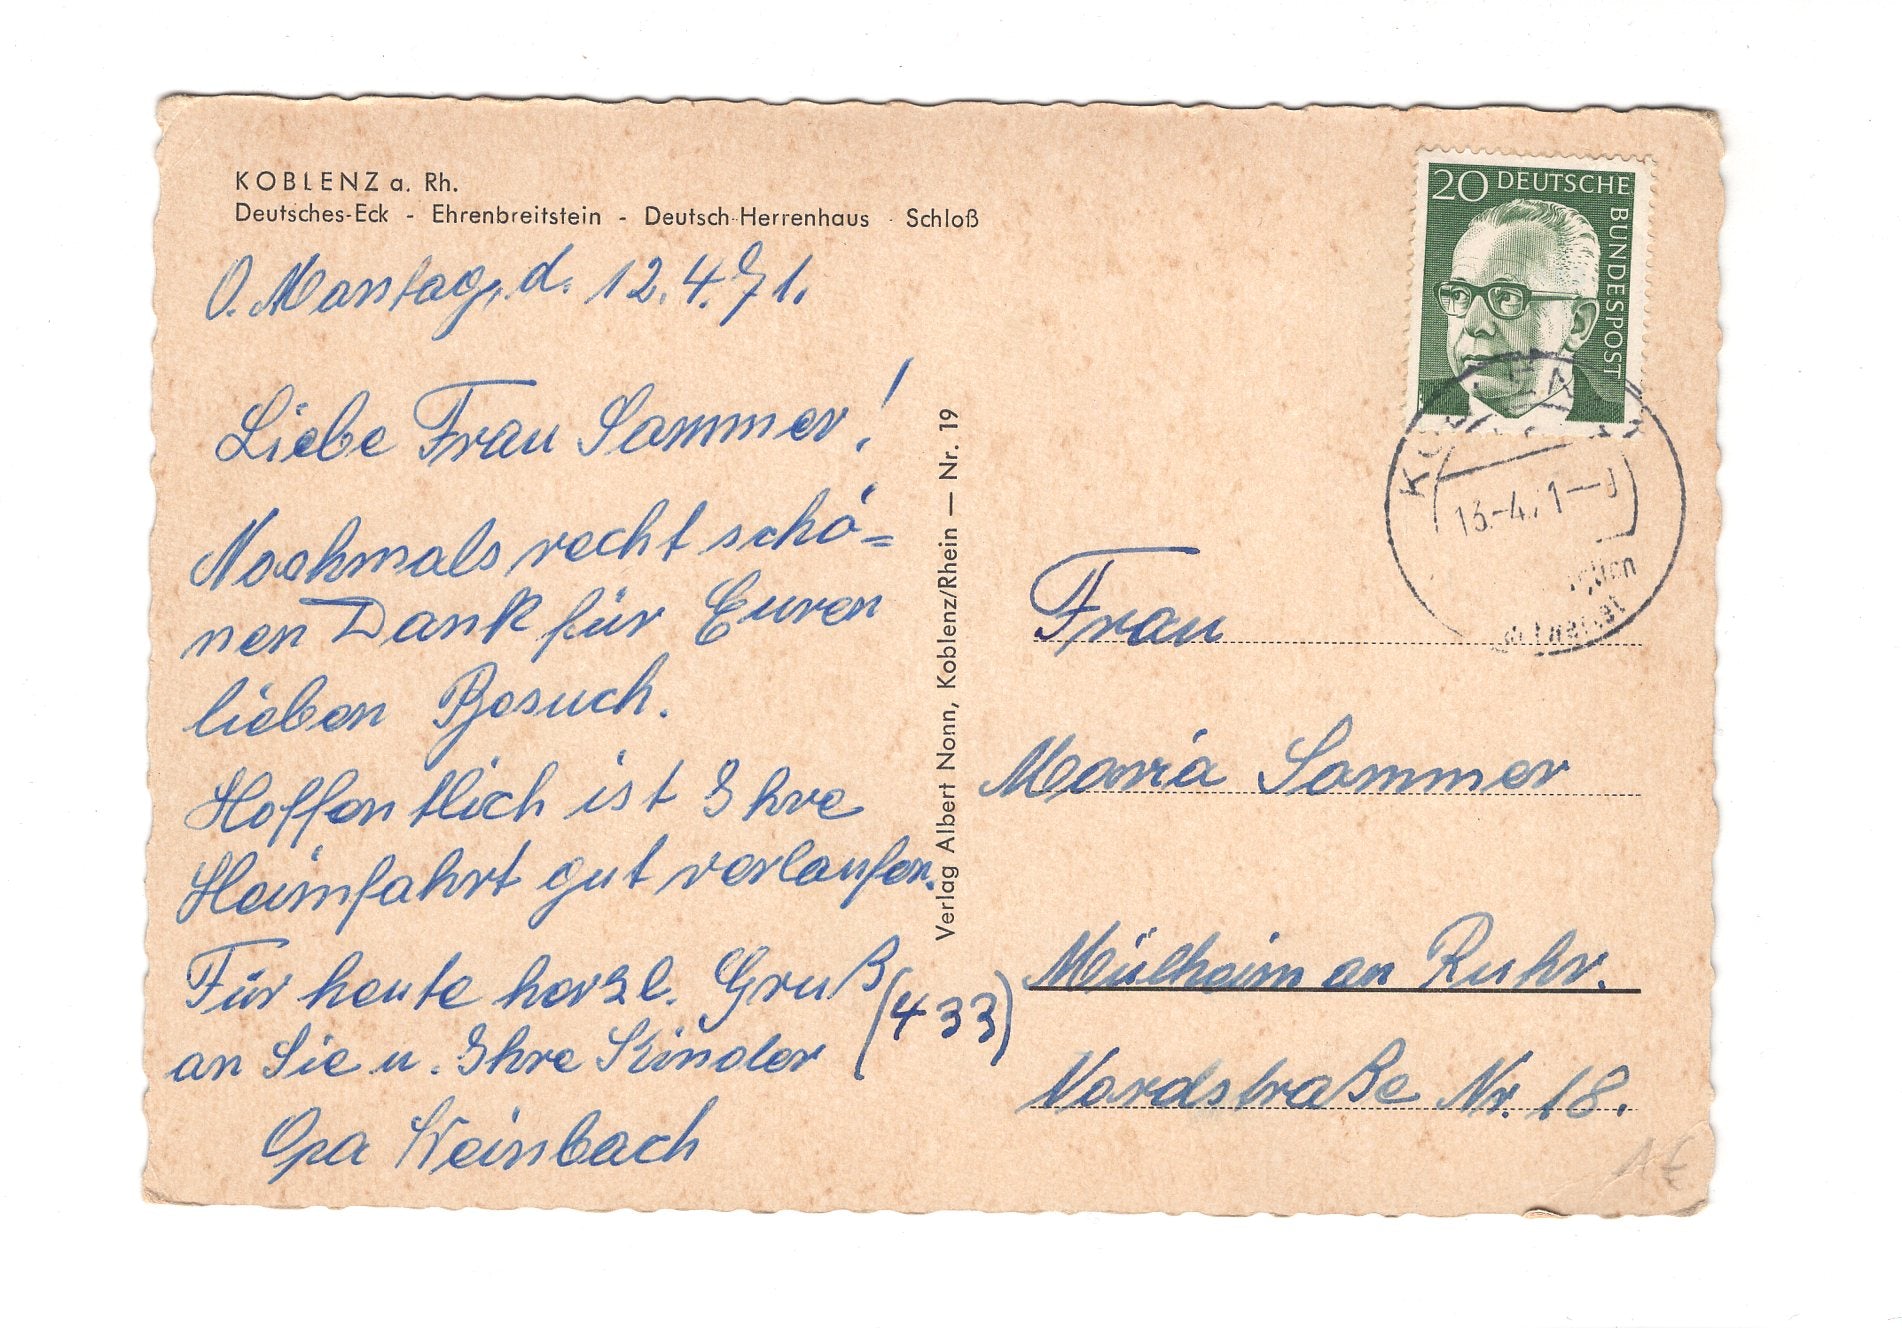 KOBLENZ a. Rh.
Deutsches-Eck - Ehrenbreitstein - Deutsch-Herrenhaus - Schloß
O. Montag, d. 12.4.71.
Liebe Frau Sommer!
Nochmals recht schö=
nen Dank für Euren
lieben Besuch.
Hoffentlich ist Ihre
Heimfahrt gut verlaufen.
Für heute herzl. Gruß
an Sie u. Ihre Kinder
Opa Weinbach
Verlag Albert Nonn, Koblenz/Rhein — Nr. 19
20 DEUTSCHE
BUNDESPOST
13.-4.71
Frau
Maria Sommer
(433)
Mülheim an Ruhr.
Nordstraße Nr. 18.
1 €